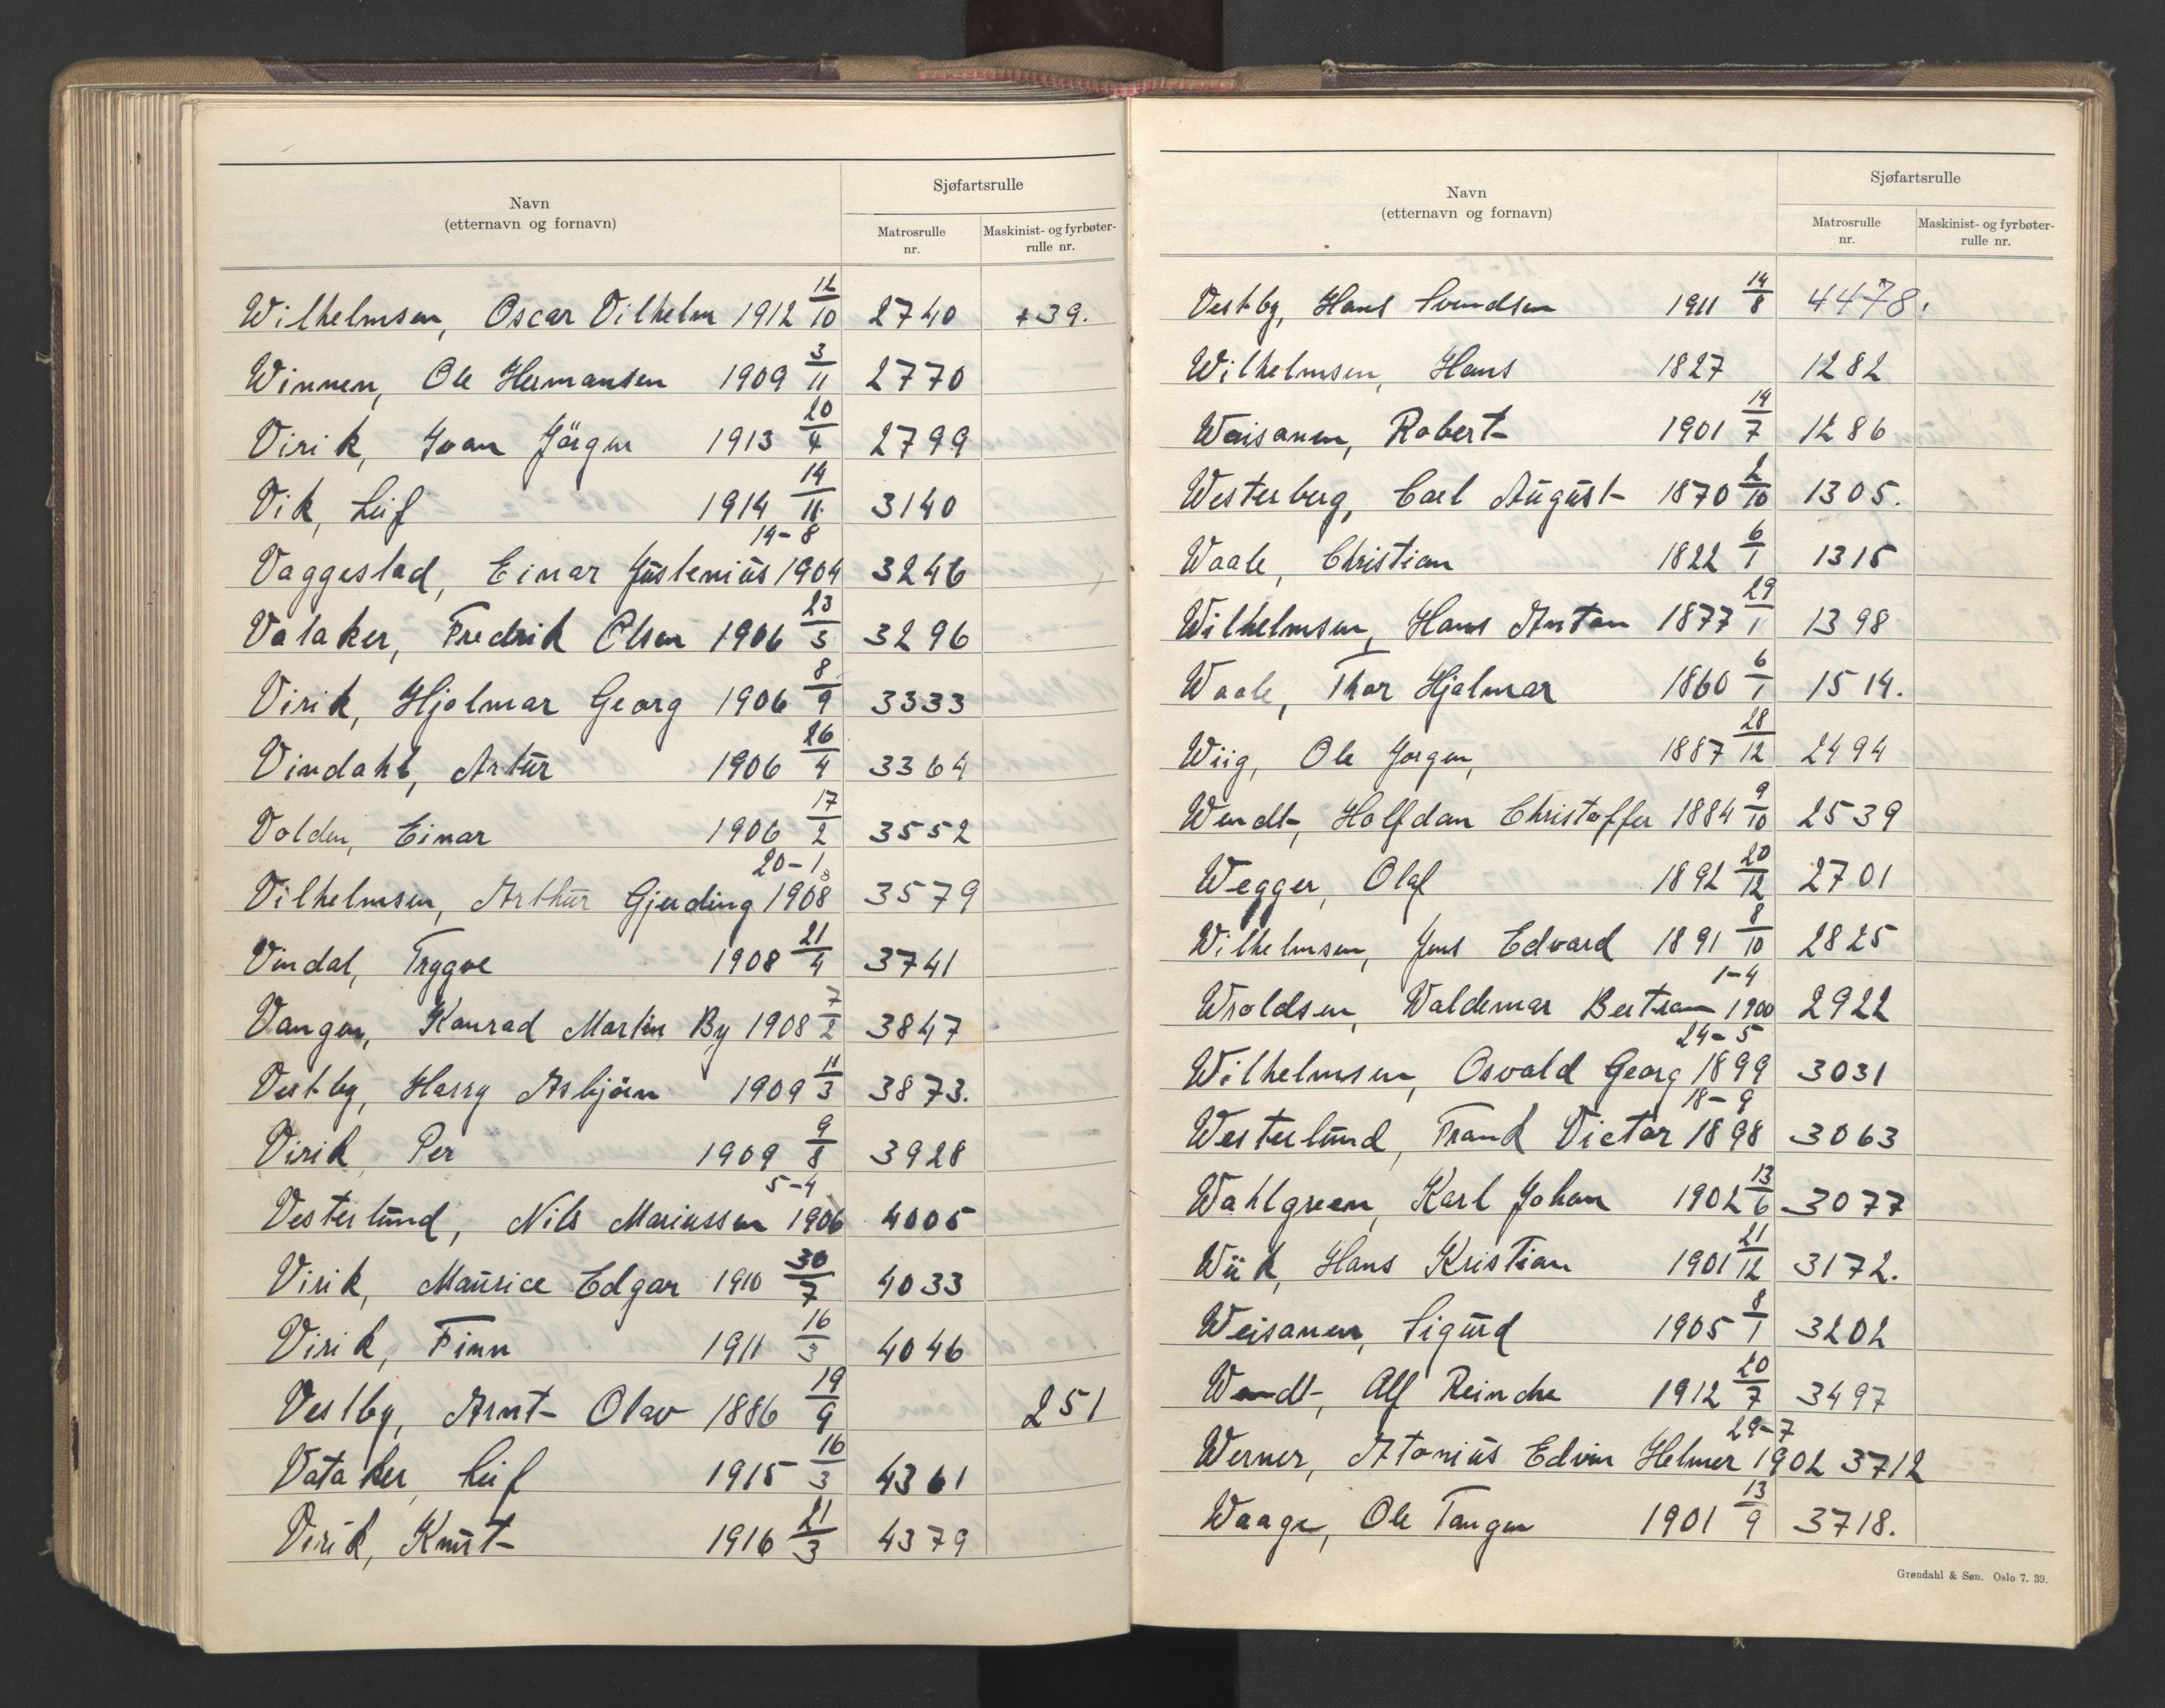 Navn
(etternavn og fornavn)
Sjøfartsrulle
Matrosrulle nr.
Maskinist- og fyrbøter-rulle nr.
Wilhelmsen, Oscar Vilhelm 1912 12/10 2740 +39.
Winnen, Ole Hermansen 1909 3/11 2770
Virik, Ivan Jörgen 1913 20/4 2799
Vik, Leif 1914 14/11 3140
Vaggestad, Einar Justenius 14-8 1904 3246
Valaker, Fredrik Olsen 1906 23/3 3296
Virik, Hjalmar Georg 1906 8/9 3333
Vindahl, Artur 1906 26/4 3364
Volden, Einar 1906 17/2 3552
Vilhelmsen, Arthur Gjerding 20-1 1908 3579
Vindal, Trygve 1908 21/4 3741
Vangen, Konrad Martin By 1908 7/2 3847
Vestby, Harry Asbjörn 1909 11/3 3873.
Virik Per 1909 9/8 3928
Vesterlund, Nils Mariussen 5-4 1906 4005
Virik, Maurice Edgar 1910 30/7 4033
Virik, Finn 1911 16/3 4046
Vestby, Arnt Olav 1886 19/9 251
Vataker, Leif 1915 16/3 4361
Virik, Knut 1916 21/3 4379
Navn
(etternavn og fornavn)
Sjøfartsrulle
Matrosrulle nr.
Maskinist- og fyrbøter-rulle nr.
Vestby, Hans Svendsen 1911 14/8 4478.
Wilhelmsen, Hans 1827 1282
Waisanen, Robert 1901 14/7 1286
Westerberg, Carl August 1870 2/10 1305.
Waale, Christian 1822 6/1 1315
Wilhelmsen, Hans Anton 1877 29/1 1398
Waale, Thor Hjalmar 1860 6/1 1514.
Wiig, Ole Jorgen, 1887 28/12 2494
Wendt, Halfdan Christoffer 1884 9/10 2539
Wegger, Olaf 1892 20/12 2701
Wilhelmsen, Jens Edvard 1891 8/10 2825
Wroldsen, Waldemar Bertram 1-4 1900 2922
Wilhelmsen, Osvald Georg 24-5 1899 3031
Westerlund, Frank Victor 18-9 1898 3063
Wahlgreen, Karl Johan 1902 13/6 3077
Wiik, Hans Kristian 1901 21/12 3172.
Weisanen, Sigurd 1905 8/1 3202
Wendt, Alf Reincke 1912 20/7 3497
Werner, Atonius Edvin Helmer 29-7 1902 3712
Waage, Ole Tangen 1901 13/9 3718.
Grøndahl & Søn. Oslo 7. 39.